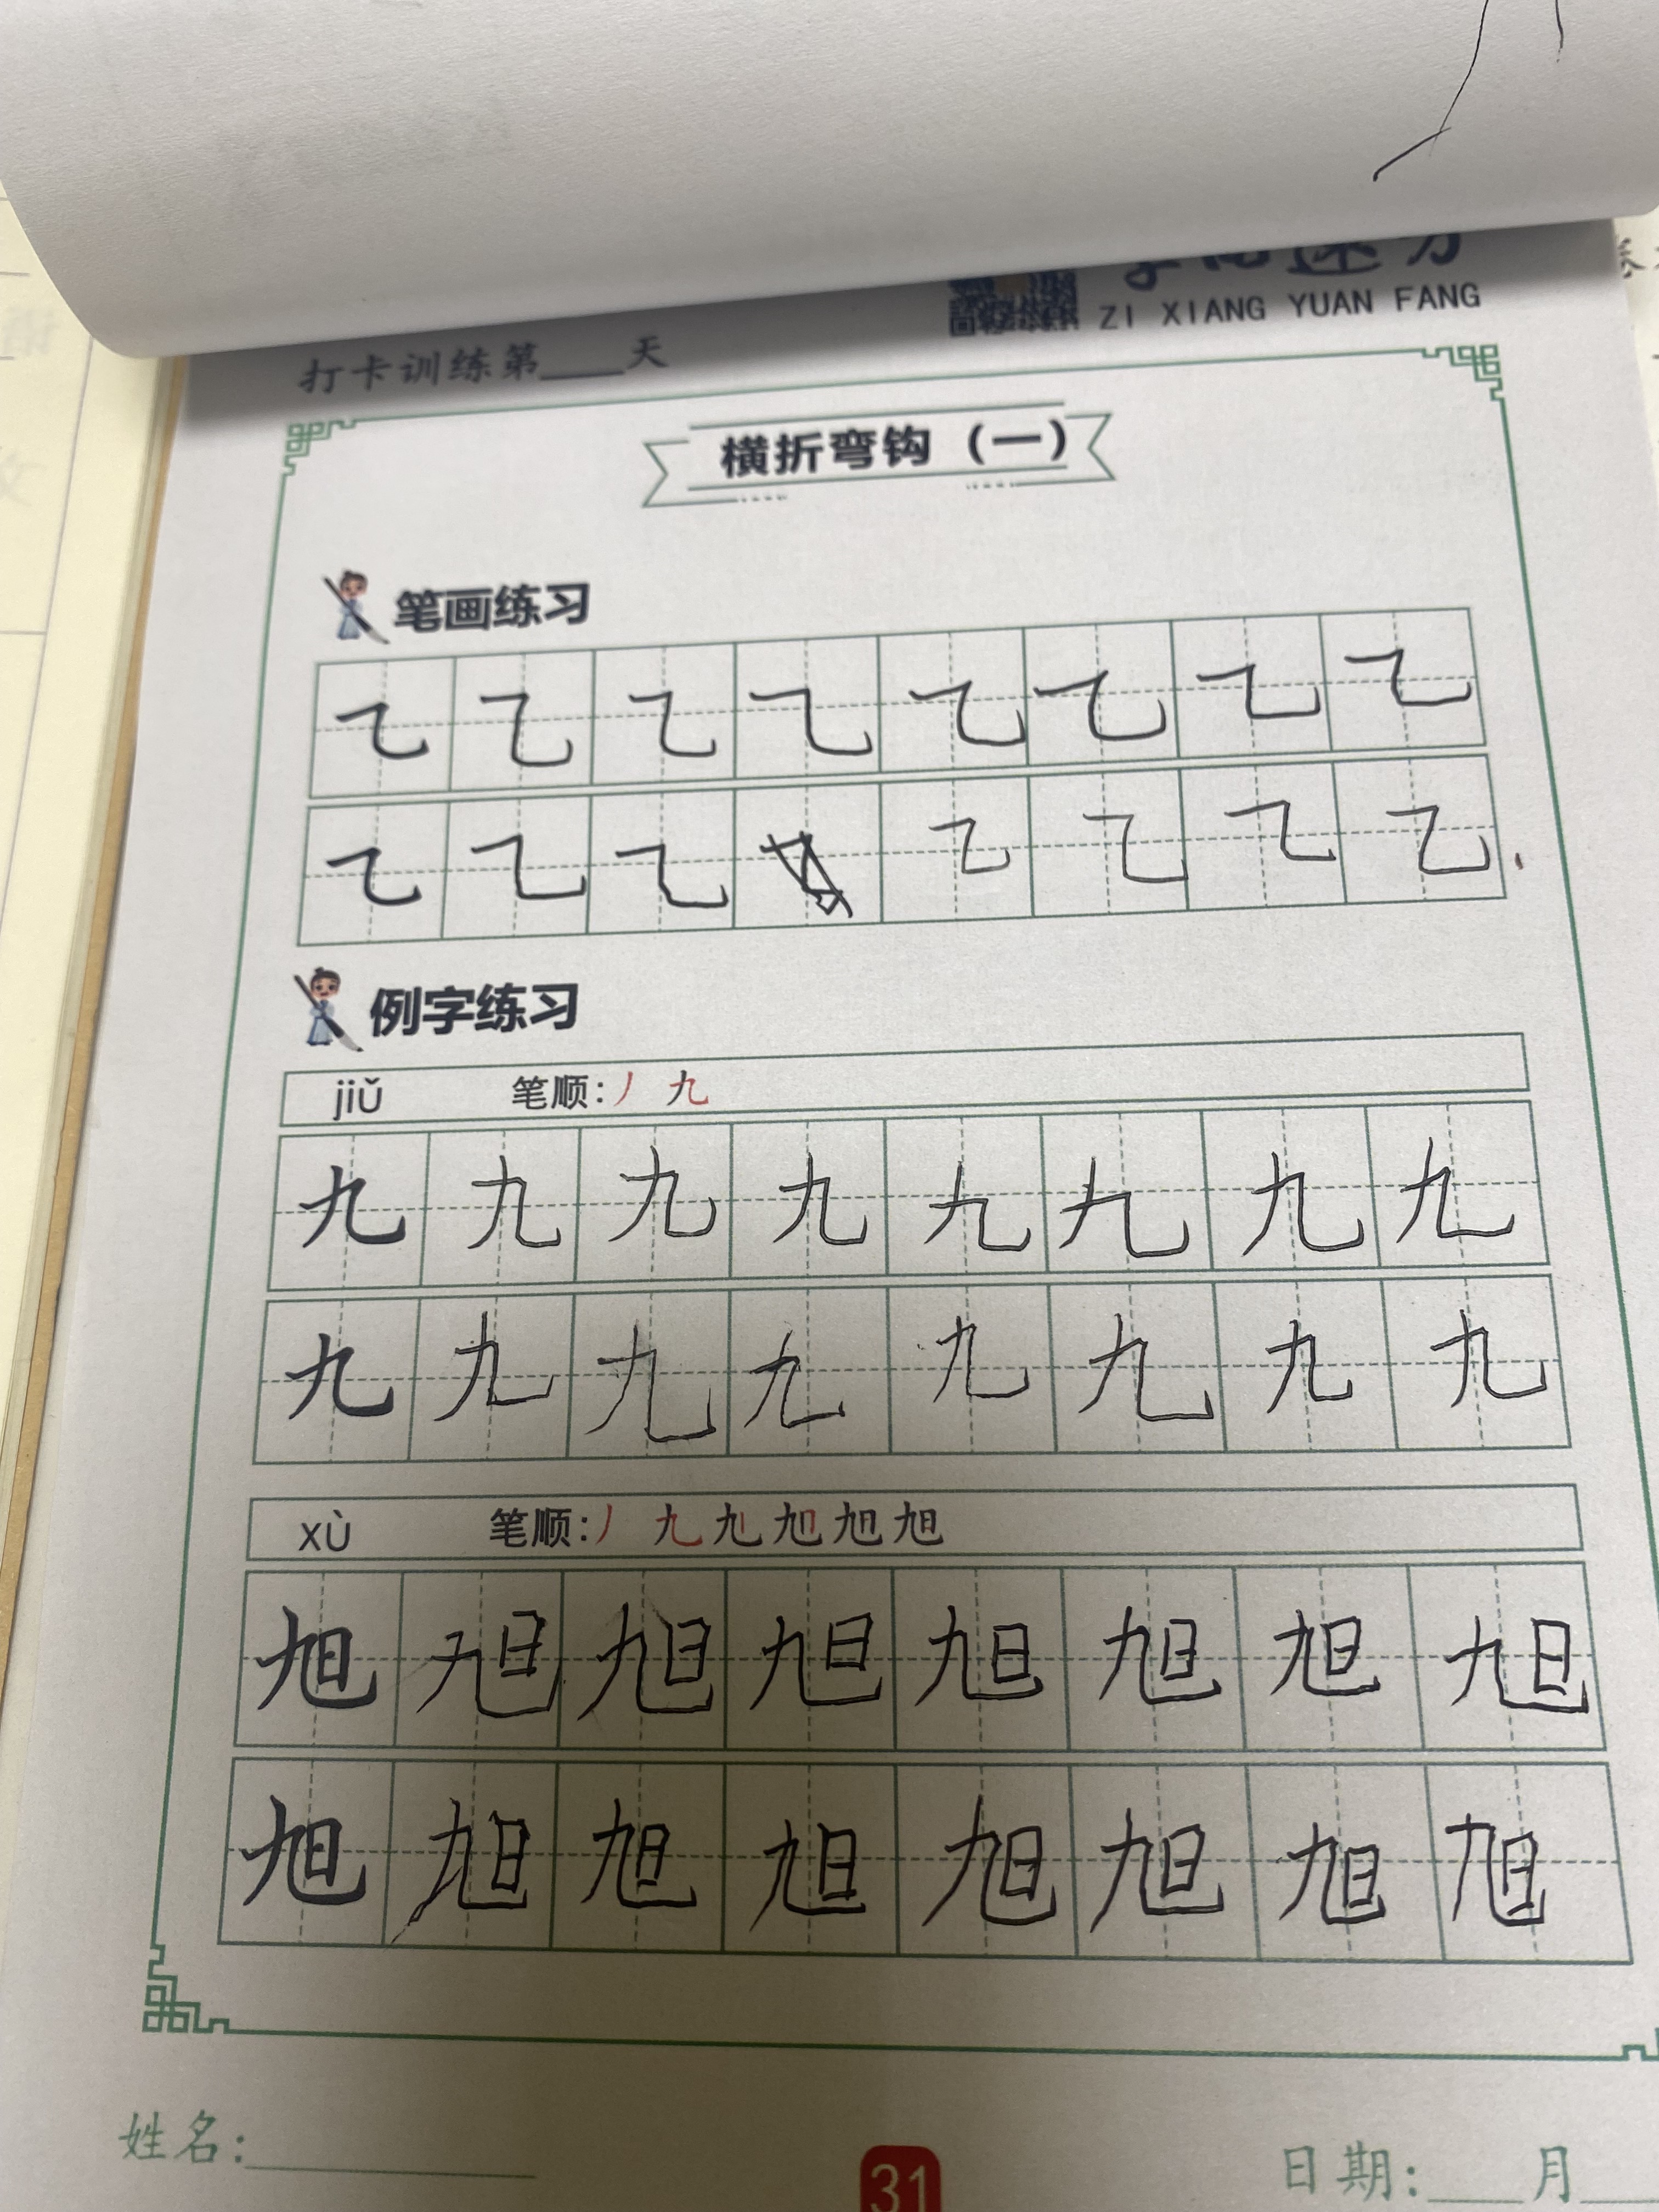 ZI XIANG YUAN FANG
打卡训练第____天
横折弯钩（一）
笔画练习
例字练习
jiǔ 笔顺:丿 九
九 九 九 九 九 九 九 九
九 九 九 九 九 九 九 九
xù 笔顺:丿 九 九 旭 旭 旭
旭 旭 旭 旭 旭 旭 旭 旭
旭 旭 旭 旭 旭 旭 旭 旭
姓名:____________
31
日期:____月